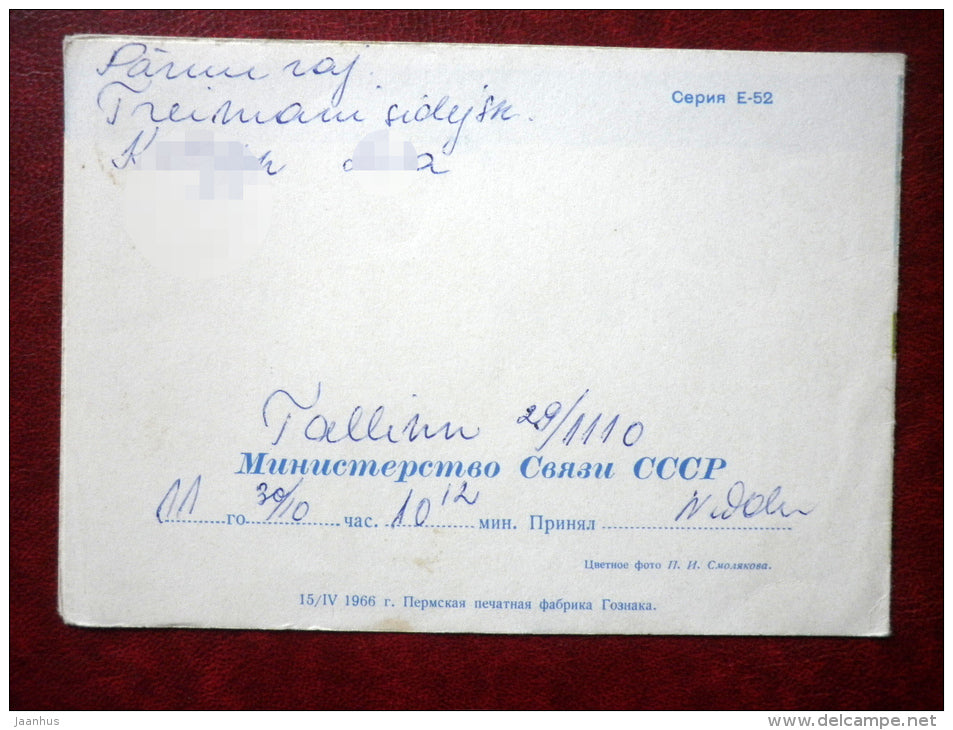 Pärnu raj.
Treimani sidejsk.
Серия Е-52
Tallinn 29/1110
Министерство Связи СССР
11 го 30/10 час. 10 12 мин. Принял
Цветное фото П. И. Смолякова.
15/IV 1966 г. Пермская печатная фабрика Гознака.
jaanhus
www.delcampe.net